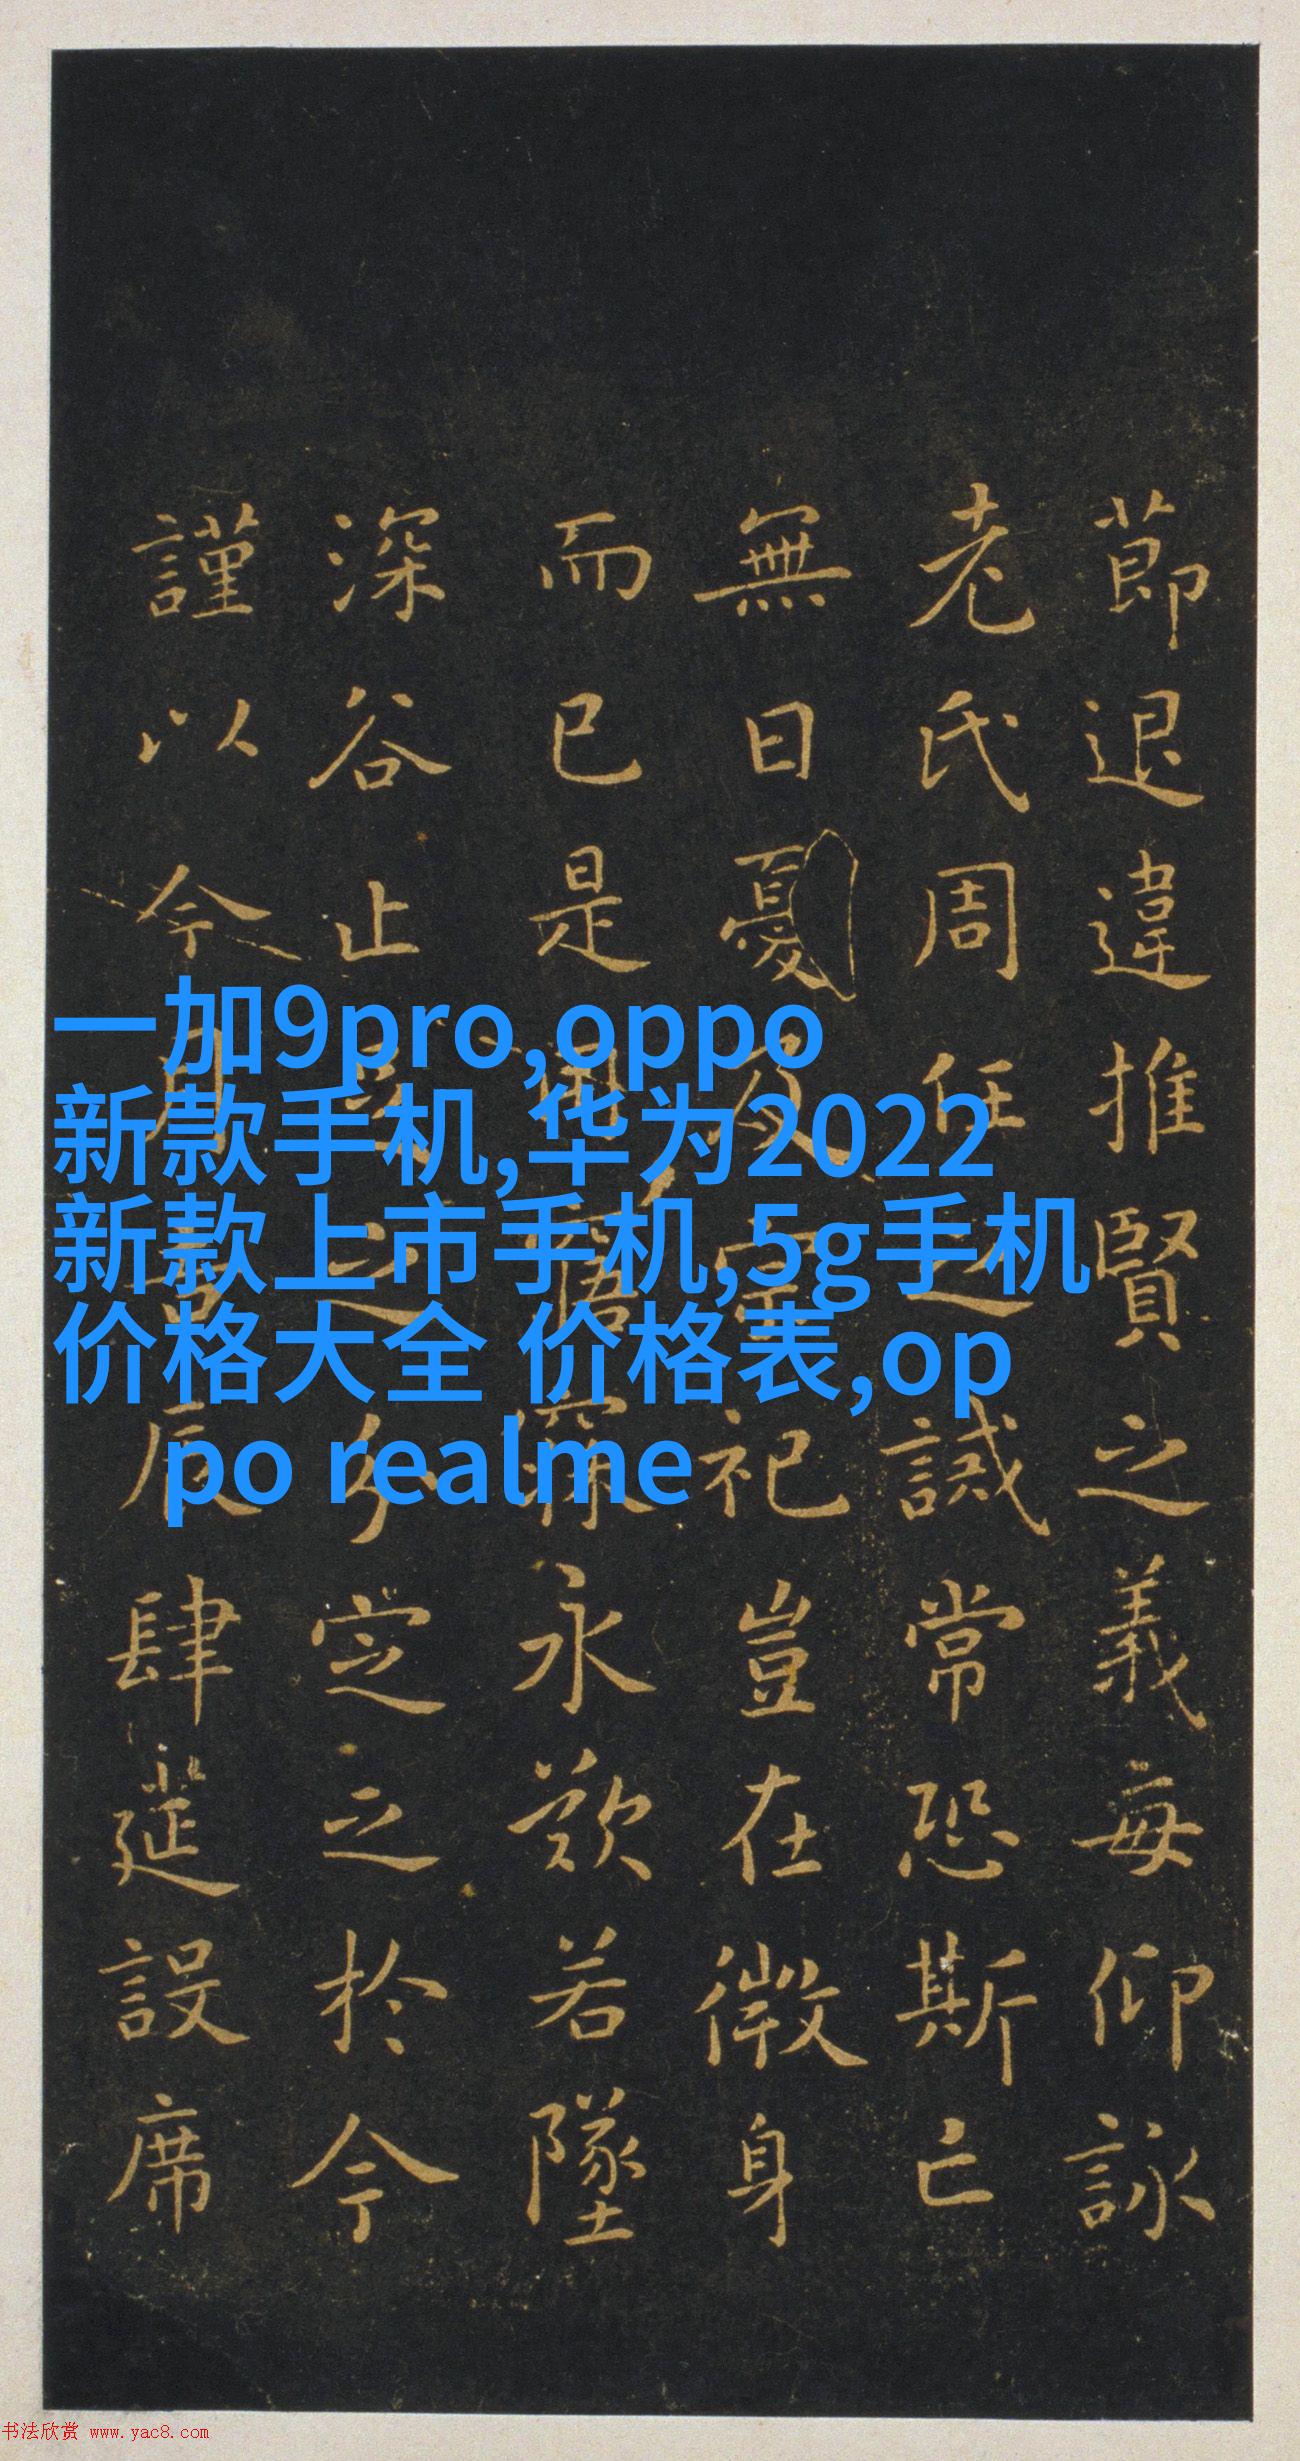 莭退違推賢之義每仰詠
老氏周任之誡常恐斯亡
無日憂及宗祀豈在微身
而已是用寤寐永歎若墜
深谷止足之分定之於今
謹以今月吉辰肆筵設席
一加9pro,oppo
新款手机,华为2022
新款上市手机,5g手机
价格大全 价格表,op
po realme
书法欣赏 www.yac8.com